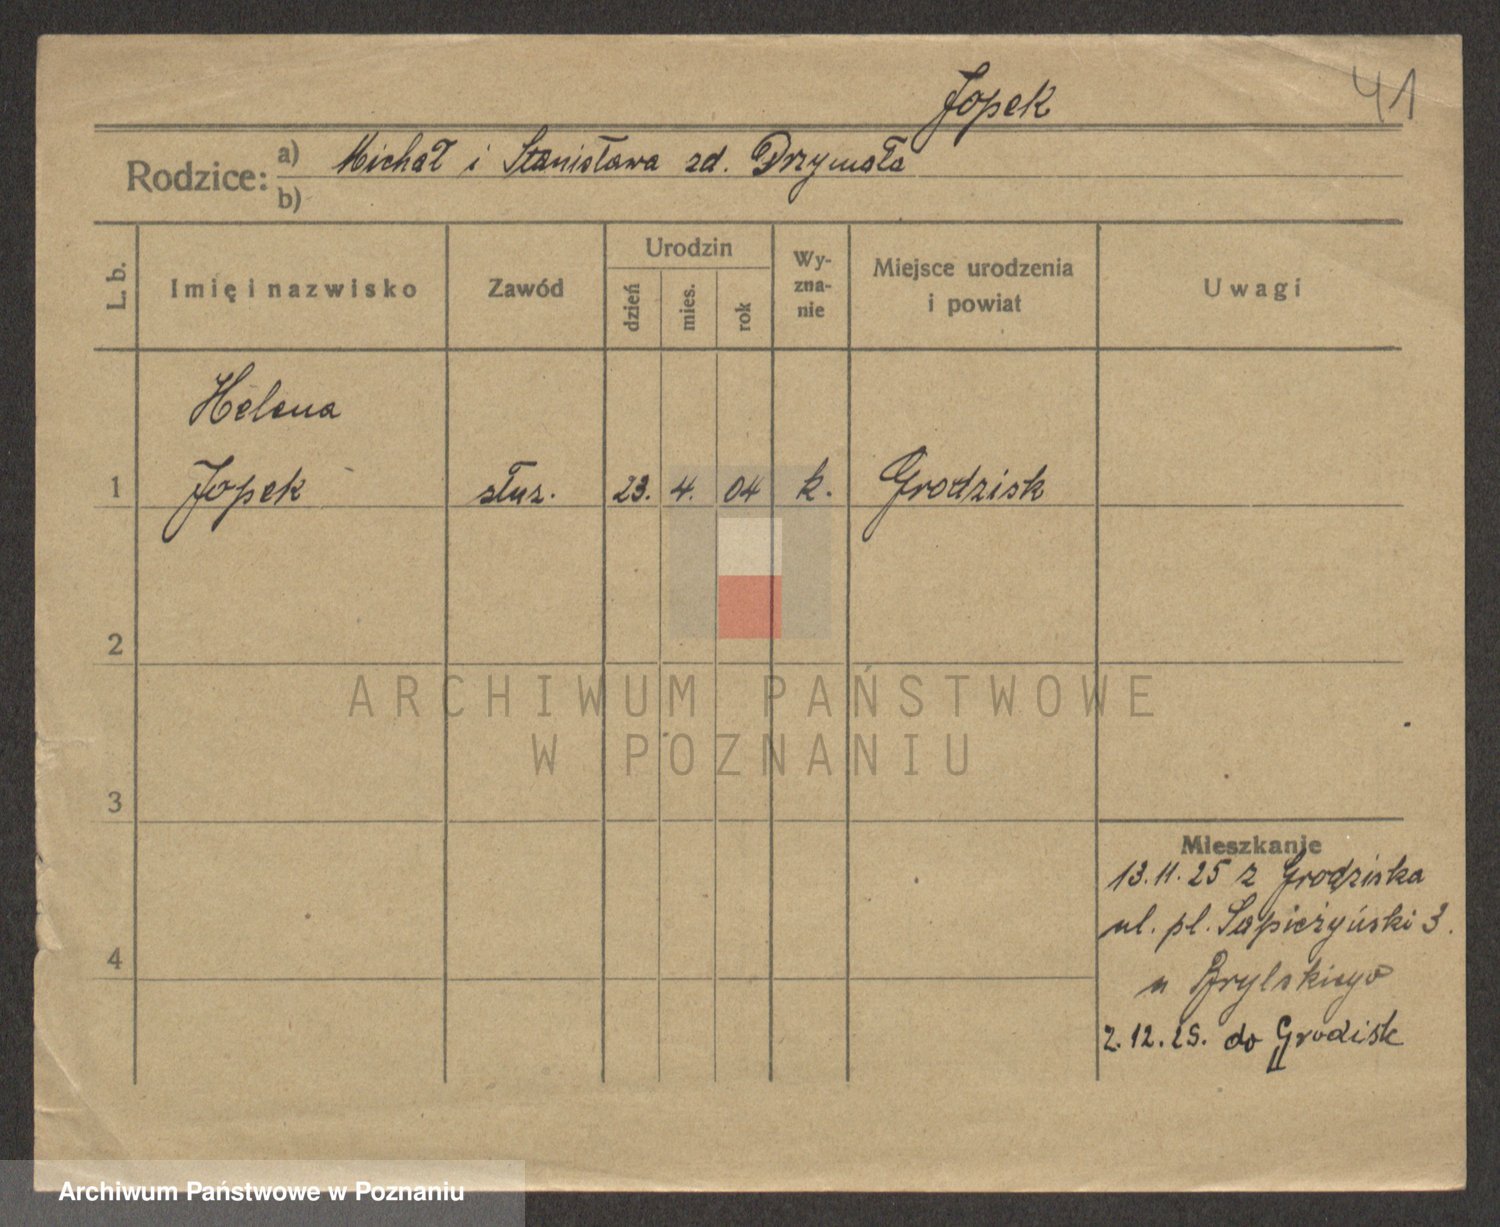 Jopek
41
Rodzice: a) Michał i Stanisława zd. Przymała
b)
L. b.
Imię i nazwisko
Zawód
Urodzin
dzień
mies.
rok
Wy-
zna-
nie
Miejsce urodzenia
i powiat
Uwagi
Helena
1 Jopek służ. 23. 4. 04 k. Grodzisk
2
ARCHIWUM PAŃSTWOWE
W POZNANIU
3
Mieszkanie
13.11.25 z Grodziska
ul. pl. Sapieżyński 3.
4
u Brylskiego
2.12.25. do Grodisk
Archiwum Państwowe w Poznaniu